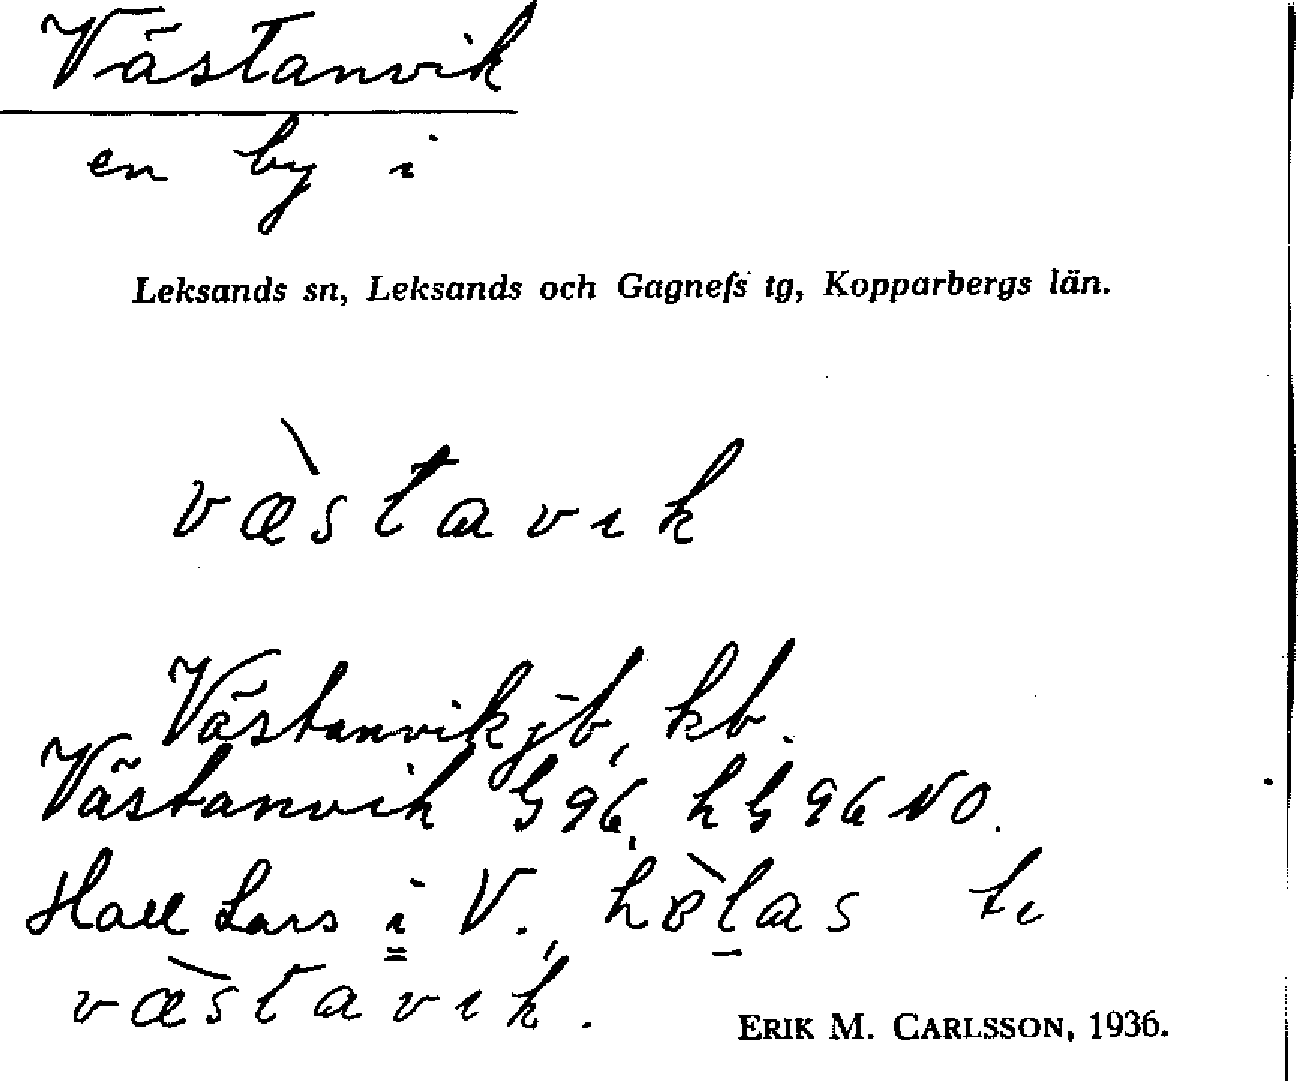 Västanvik
en by i
Leksands sn, Leksands och Gagnefs tg, Kopparbergs län.
væ̀stavık
Västanvik jb, kb.
Västanvik G 96, h G 96 NO.
Lars i V., tı
væ̀stavık.
ERIK M. CARLSSON, 1936.